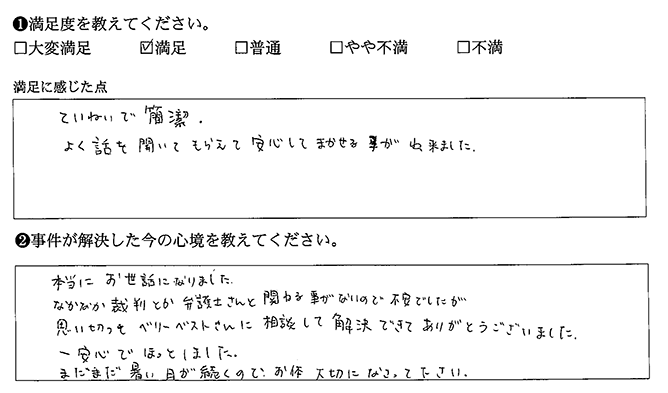 ❶満足度を教えてください。
□大変満足 ☑満足 □普通 □やや不満 □不満
満足に感じた点
ていねいで簡潔.
よく話を聞いてもらえて安心してまかせる事が出来ました.
❷事件が解決した今の心境を教えてください。
本当にお世話になりました.
なかなか裁判とか弁護士さんと関わる事がないので不安でしたが
思い切ってベリーベストさんに相談して解決できてありがとうございました.
一安心でほっとしました。
まだまだ暑い日が続くので、お体大切になさって下さい.